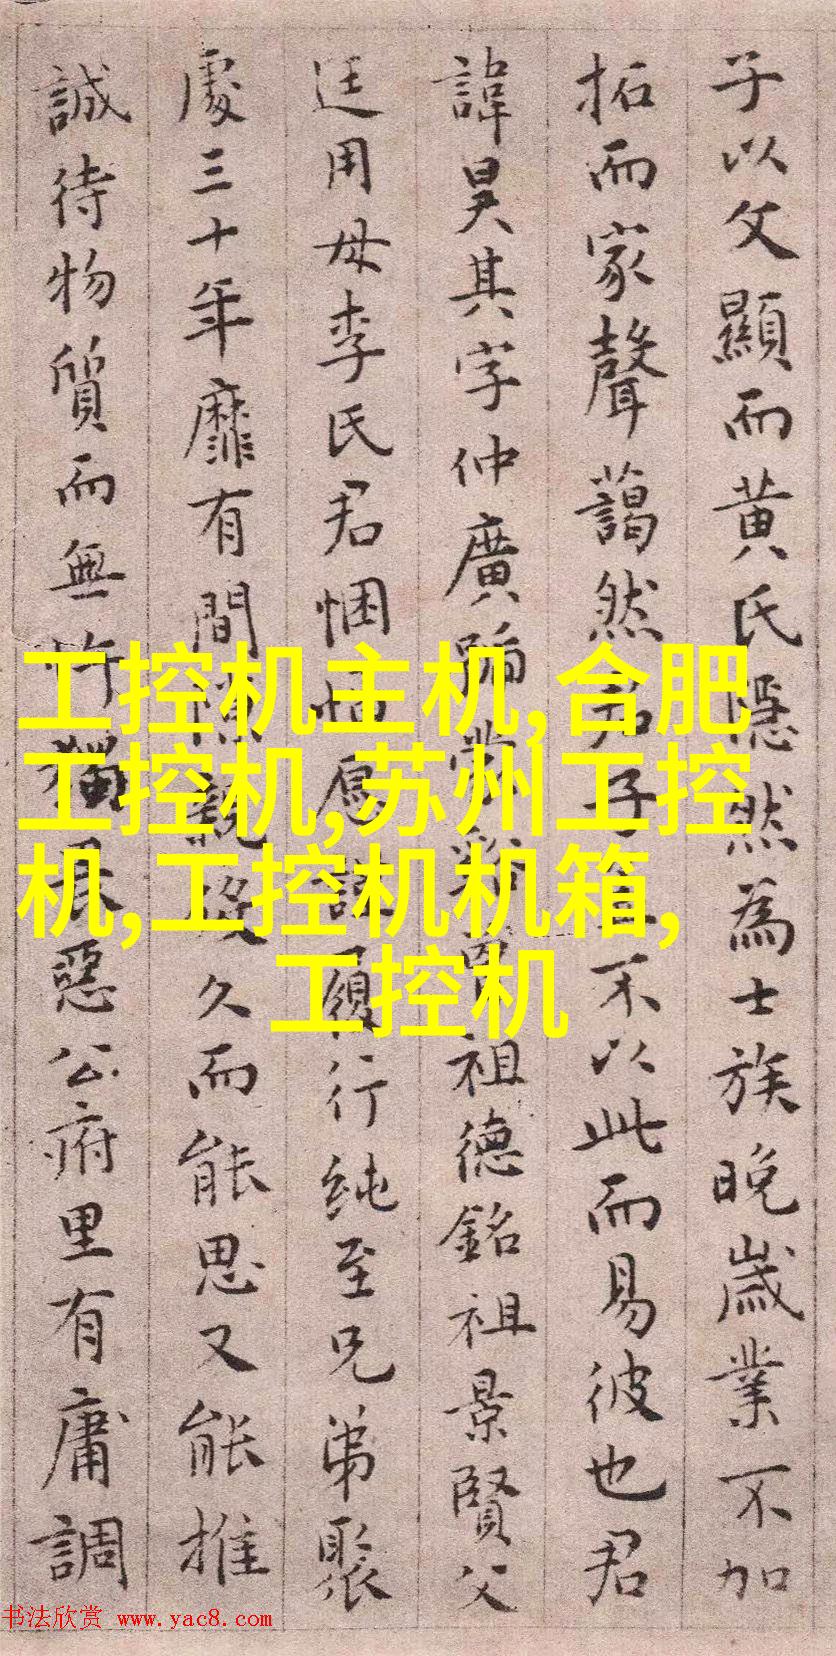 子以父顯而黄氏隱然為士族晚歲業不加
拓而家聲藹然君子不以此而易彼也君
諱昊其字仲廣祖德銘祖景賢父
廷用母李氏君悃愊愿謹履行纯至兄弟聚
處三十年靡有間隙親久而能思又能推
誠待物質而無忤獨畏惡公府里有庸調
工控机主机,合肥
工控机,苏州工控
机,工控机机箱,
工控机
书法欣赏 www.yac8.com